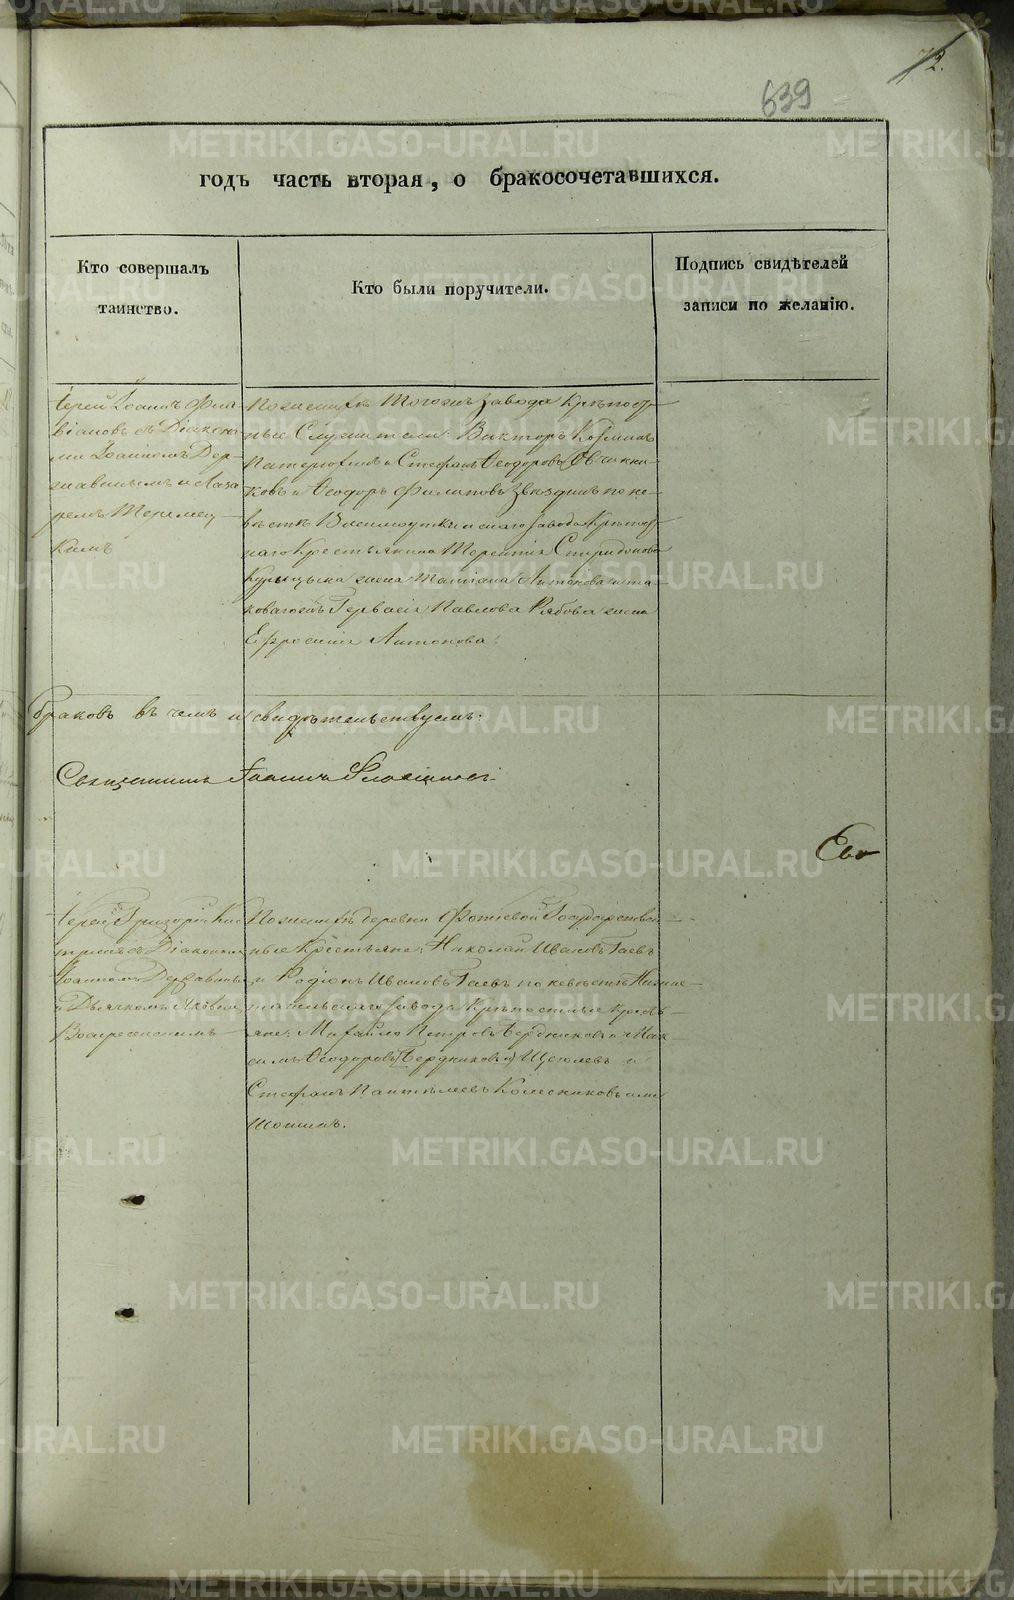 72.
639
годъ часть вторая, о бракосочетавшихся.
Кто совершалъ
таинство.
Кто были поручители.
Подпись свидѣтелей
записи по желанію.
Іерей Іоаннъ Фла
віановъ съ Діакона
ми Іоанномъ Дер
жавинымъ и Лаза
ремъ
кимъ
По женихѣ тогожъ завода Крѣпост
ные Служители: Викторъ Козминъ
и Стефанъ Ѳеодоровъ Овчинни
ковъ и Ѳеодоръ Филиповъ Звездинъ по не
вѣстѣ Висимоуткинскаго завода Крѣпост
наго Крестьянина Терентія Спиридонова
Курицына жена Татіана Антонова и та
коваго Гервасія Павлова Рябова жена
Ефросинія Антонова.
браковъ въ чемъ и свидѣтельствуемъ:
Священникъ Іоаннъ Флавіановъ
Ево
Іерей Григорій
съ Діакономъ
Іоанномъ Державинымъ
и Дьячкомъ Яковомъ
Воскресенскимъ
По женихѣ деревни Фотеевой Государствен
ные Крестьяне: Николай Ивановъ Гаевъ
и Родіонъ Ивановъ Гаевъ по невѣстѣ Нижне
тагильскаго завода Крѣпостные Кресть
яне: Михайло Петровъ Бердниковъ и Мак
симъ Ѳеодоровъ (Бердниковъ) Щеголевъ и
Стефанъ Пантелеевъ Колесниковъ или
METRIKI.GASO-URAL.RU